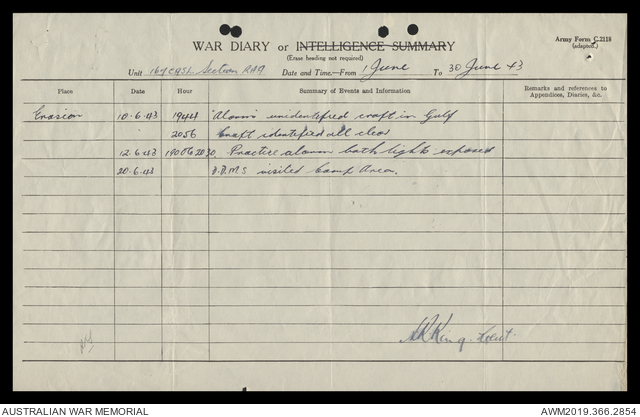 Army Form C.2118
(adapted.)
WAR DIARY or INTELLIGENCE SUMMARY
(Erase heading not required)
Unit Section RAA Date and Time:—From 1 June To 30 June 43
Place Date Hour Summary of Events and Information Remarks and references to Appendices, Diaries, &c.
10.6.43 1944 Alarm unidentified craft in Gulf
2056 Craft identified all clear
12.6.43 1900 to 2030 Practice alarm both lights exposed
20.6.43 A.D.M.S visited Camp Area.
King. Lieut.
AUSTRALIAN WAR MEMORIAL AWM2019.366.2854